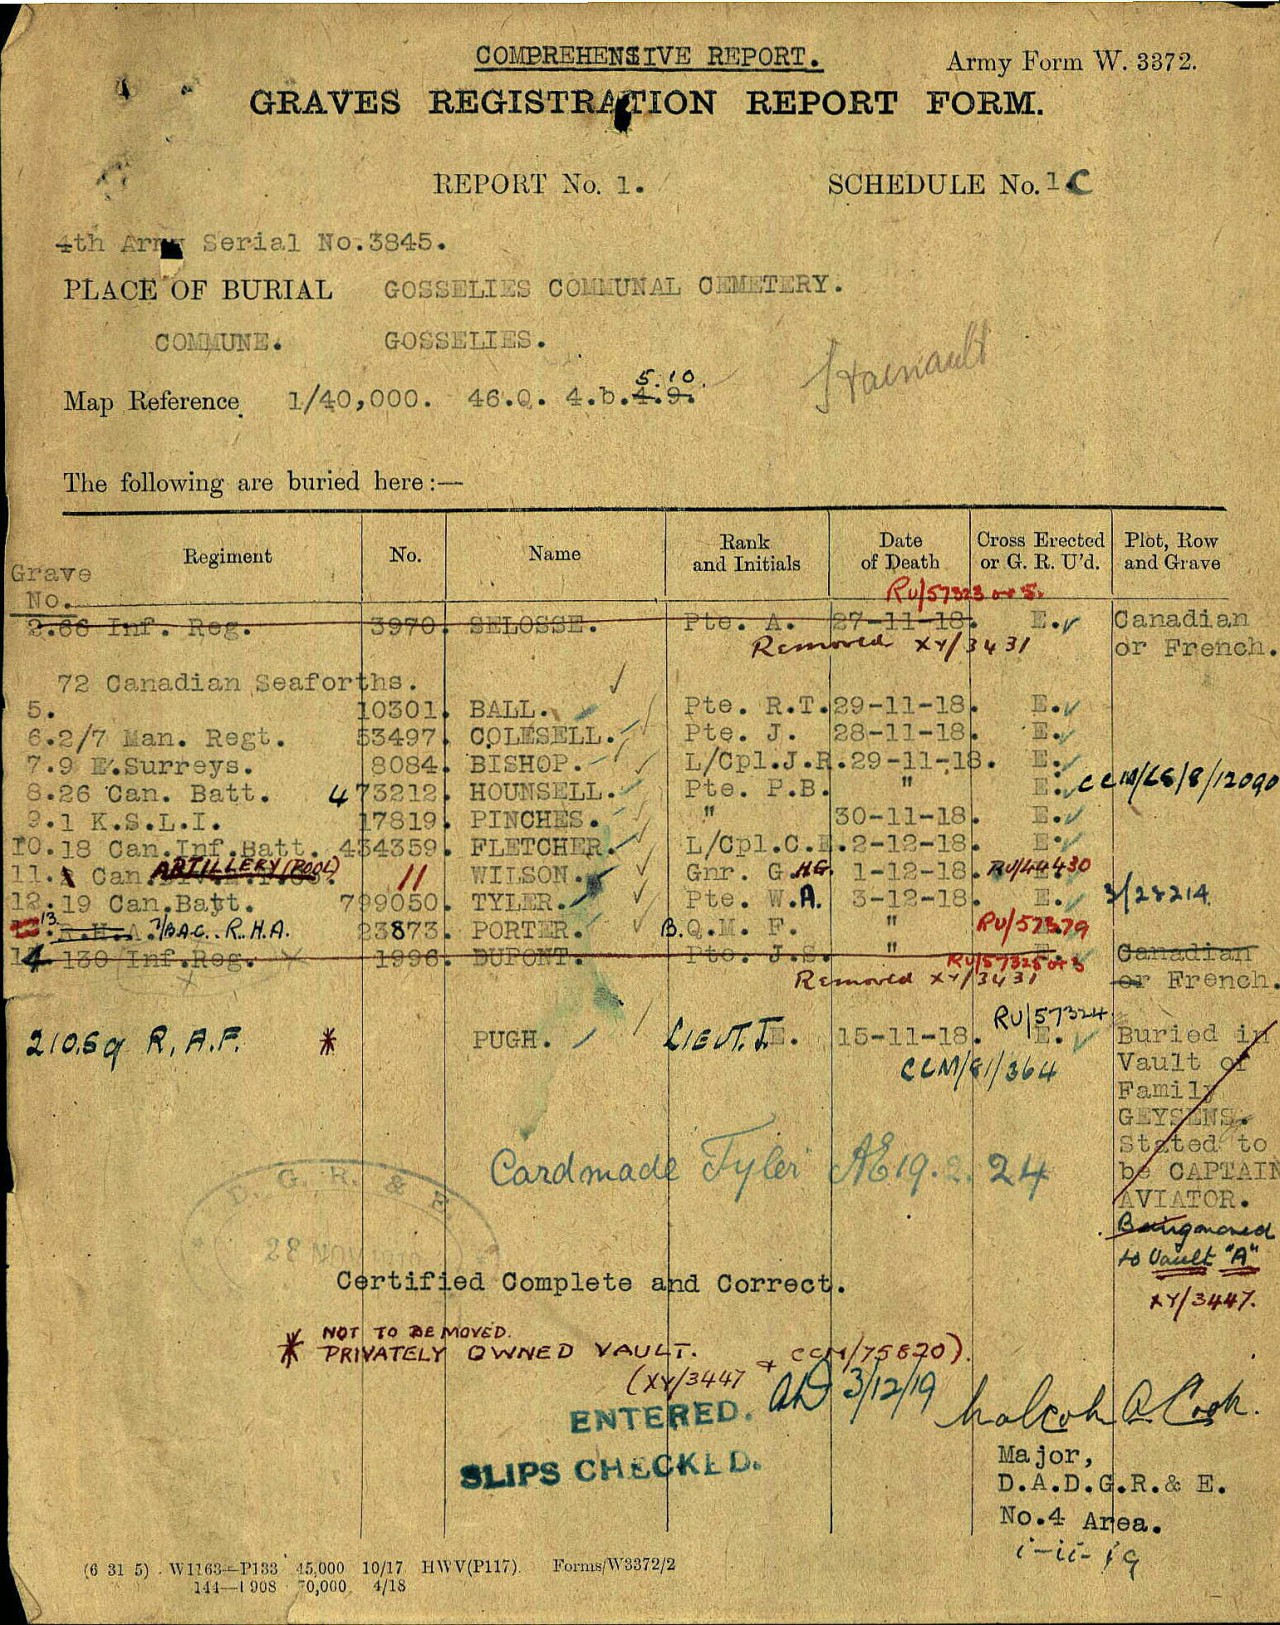 COMPREHENSIVE REPORT.
Army Form W. 3372.
GRAVES REGISTRATION REPORT FORM.
REPORT No. 1.
SCHEDULE No. 1 C
4th Army Serial No.3845.
PLACE OF BURIAL GOSSELIES COMMUNAL CEMETERY.
COMMUNE. GOSSELIES.
Hainault
5.10.
Map Reference 1/40,000. 46.Q. 4.b.4.9.
The following are buried here:—
Grave No. Regiment No. Name Rank and Initials Date of Death Cross Erected or G. R. U'd. Plot, Row and Grave
RU/57323 or 5.
2.66 Inf. Reg. 3970. SELOSSE. Pte. A. 27-11-18. E. Canadian or French.
Removed XY/3431
72 Canadian Seaforths.
5. 10301. BALL. Pte. R.T. 29-11-18. E.
6.2/7 Man. Regt. 53497. COLESELL. Pte. J. 28-11-18. E.
7.9 E.Surreys. 8084. BISHOP. L/Cpl.J.R. 29-11-18. E.
8.26 Can. Batt. 473212. HOUNSELL. Pte. P.B. " E. CCM/LS/8/12090
9.1 K.S.L.I. 17819. PINCHES. " 30-11-18. E.
10.18 Can.Inf.Batt. 454359. FLETCHER. L/Cpl.C. 2-12-18. E.
ARTILLERY (POOL)
11. Can. 11 WILSON. Gnr. G HG. 1-12-18. RU/44430
12.19 Can.Batt. 799050. TYLER. Pte. W.A. 3-12-18. E. 3/28214
13. R.H.A. 7/B.A.C. R.H.A. 23873. PORTER. B.Q.M. F. " RU/57379
14 130 Inf.Reg. 1996. DUPONT. Pte. J.S. " RU/57325 or 3 Canadian or French.
Removed XY/3431
RU/57324
210.Sq R.A.F. * PUGH. LIEUT. J.E. 15-11-18. E. Buried in
CCM/81/364 Vault of
Family
GEYSENS.
Stated to
be CAPTAIN
AVIATOR.
Being moved
to Vault "A"
XY/3447.
Card made Tyler AE 19.2.24
D. G. R. & E.
28 NOV 1919
Certified Complete and Correct.
* NOT TO BE MOVED.
PRIVATELY OWNED VAULT.
(XY/3447 + CCM/75820).
3/12/19
ENTERED.
SLIPS CHECKED.
Malcolm A Cook.
Major,
D.A.D.G.R.& E.
No.4 Area.
1-11-19
(6 31 5) W1163—P133 45,000 10/17 HWV(P117). Forms/W3372/2
144—1908 70,000 4/18